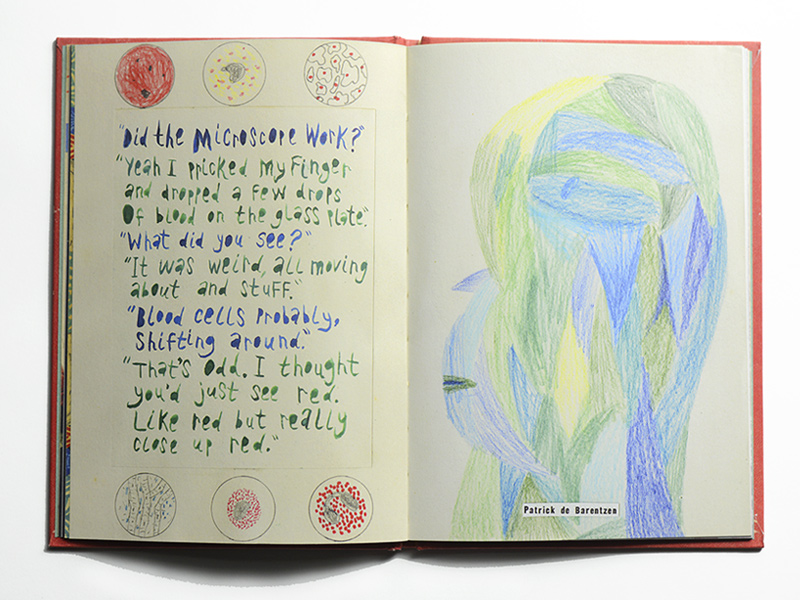 "Did the Microscope Work?"
"Yeah I pricked my Finger
and dropped a few drops
Of blood on the glass plate".
"What did you see?"
"It was weird, all moving
about and stuff."
"Blood cells Probably,
Shifting around."
"That's Odd. I thought
you'd just see red.
Like red but really
close up red."
Patrick de Barentzen